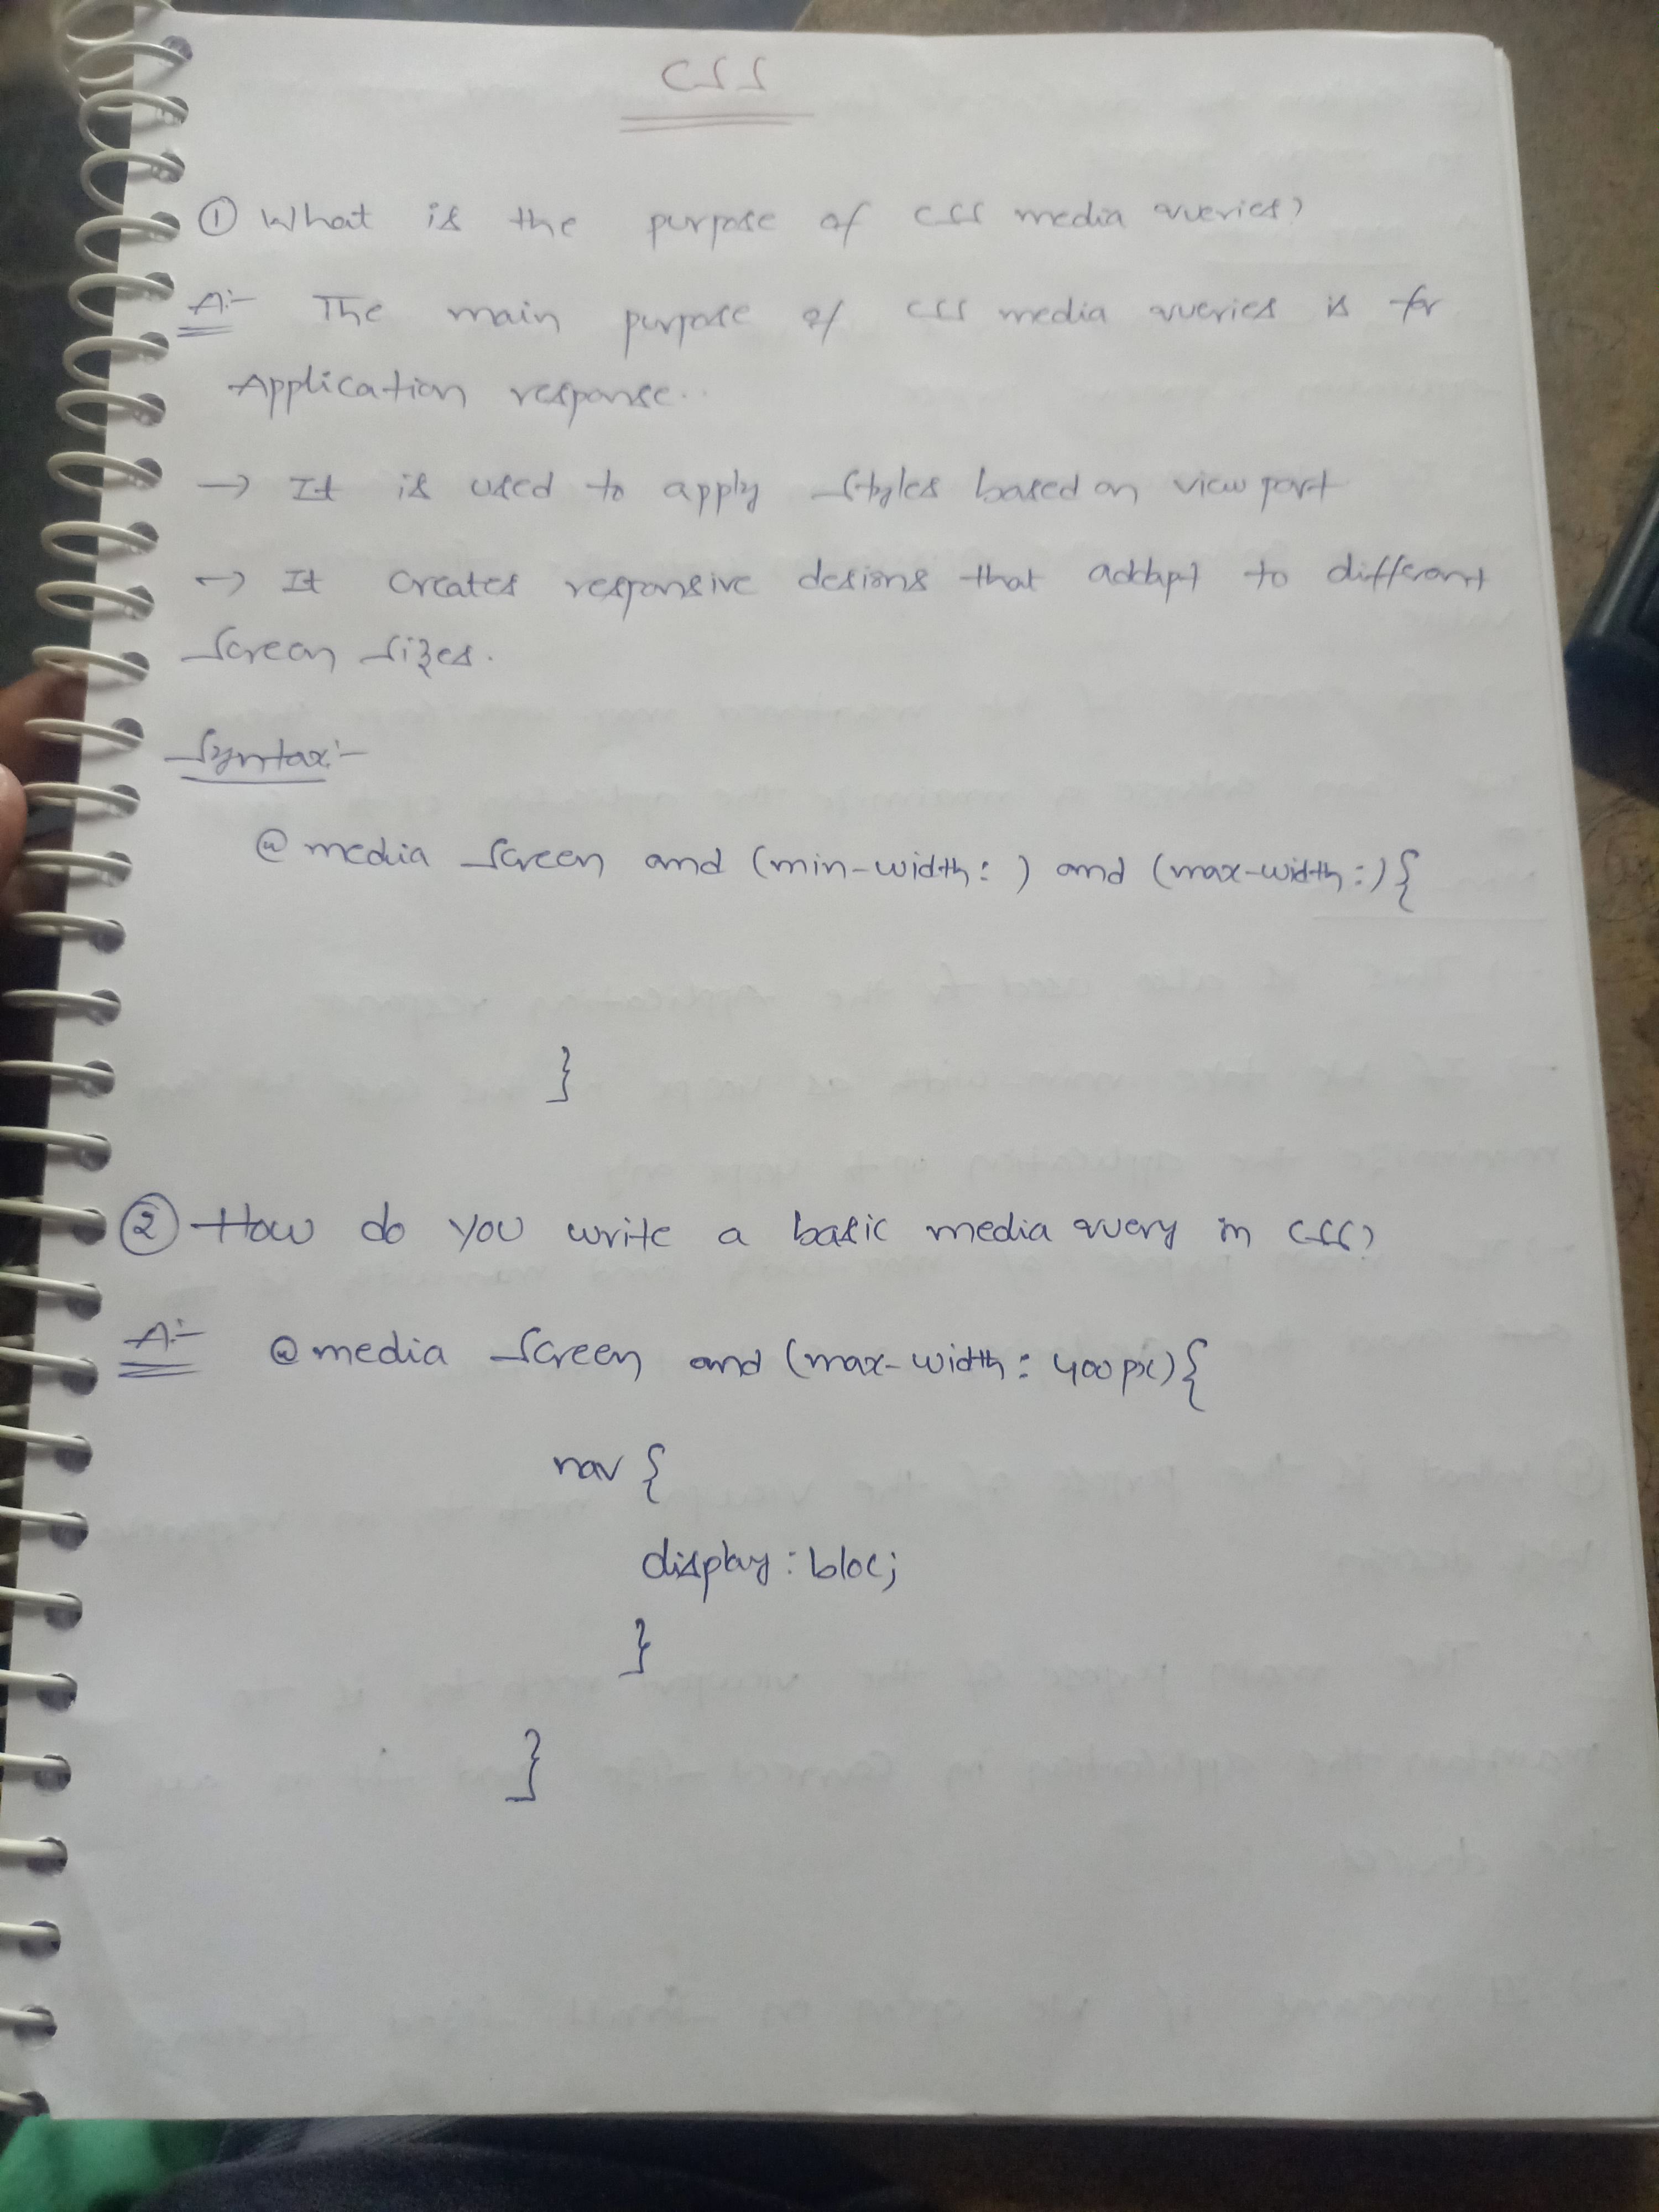 CSS
① What is the purpose of CSS media queries?
A:- The main purpose of CSS media queries is for
Application response..
→ It is used to apply styles based on view port
→ It creates responsive desions that addapt to different
screen sizes.
Syntax:-
@media screen and (min-width: ) and (max-width:){
}
② How do you write a basic media query in CSS?
A:- @media screen and (max-width: 400px){
nav {
display: bloc;
}
}